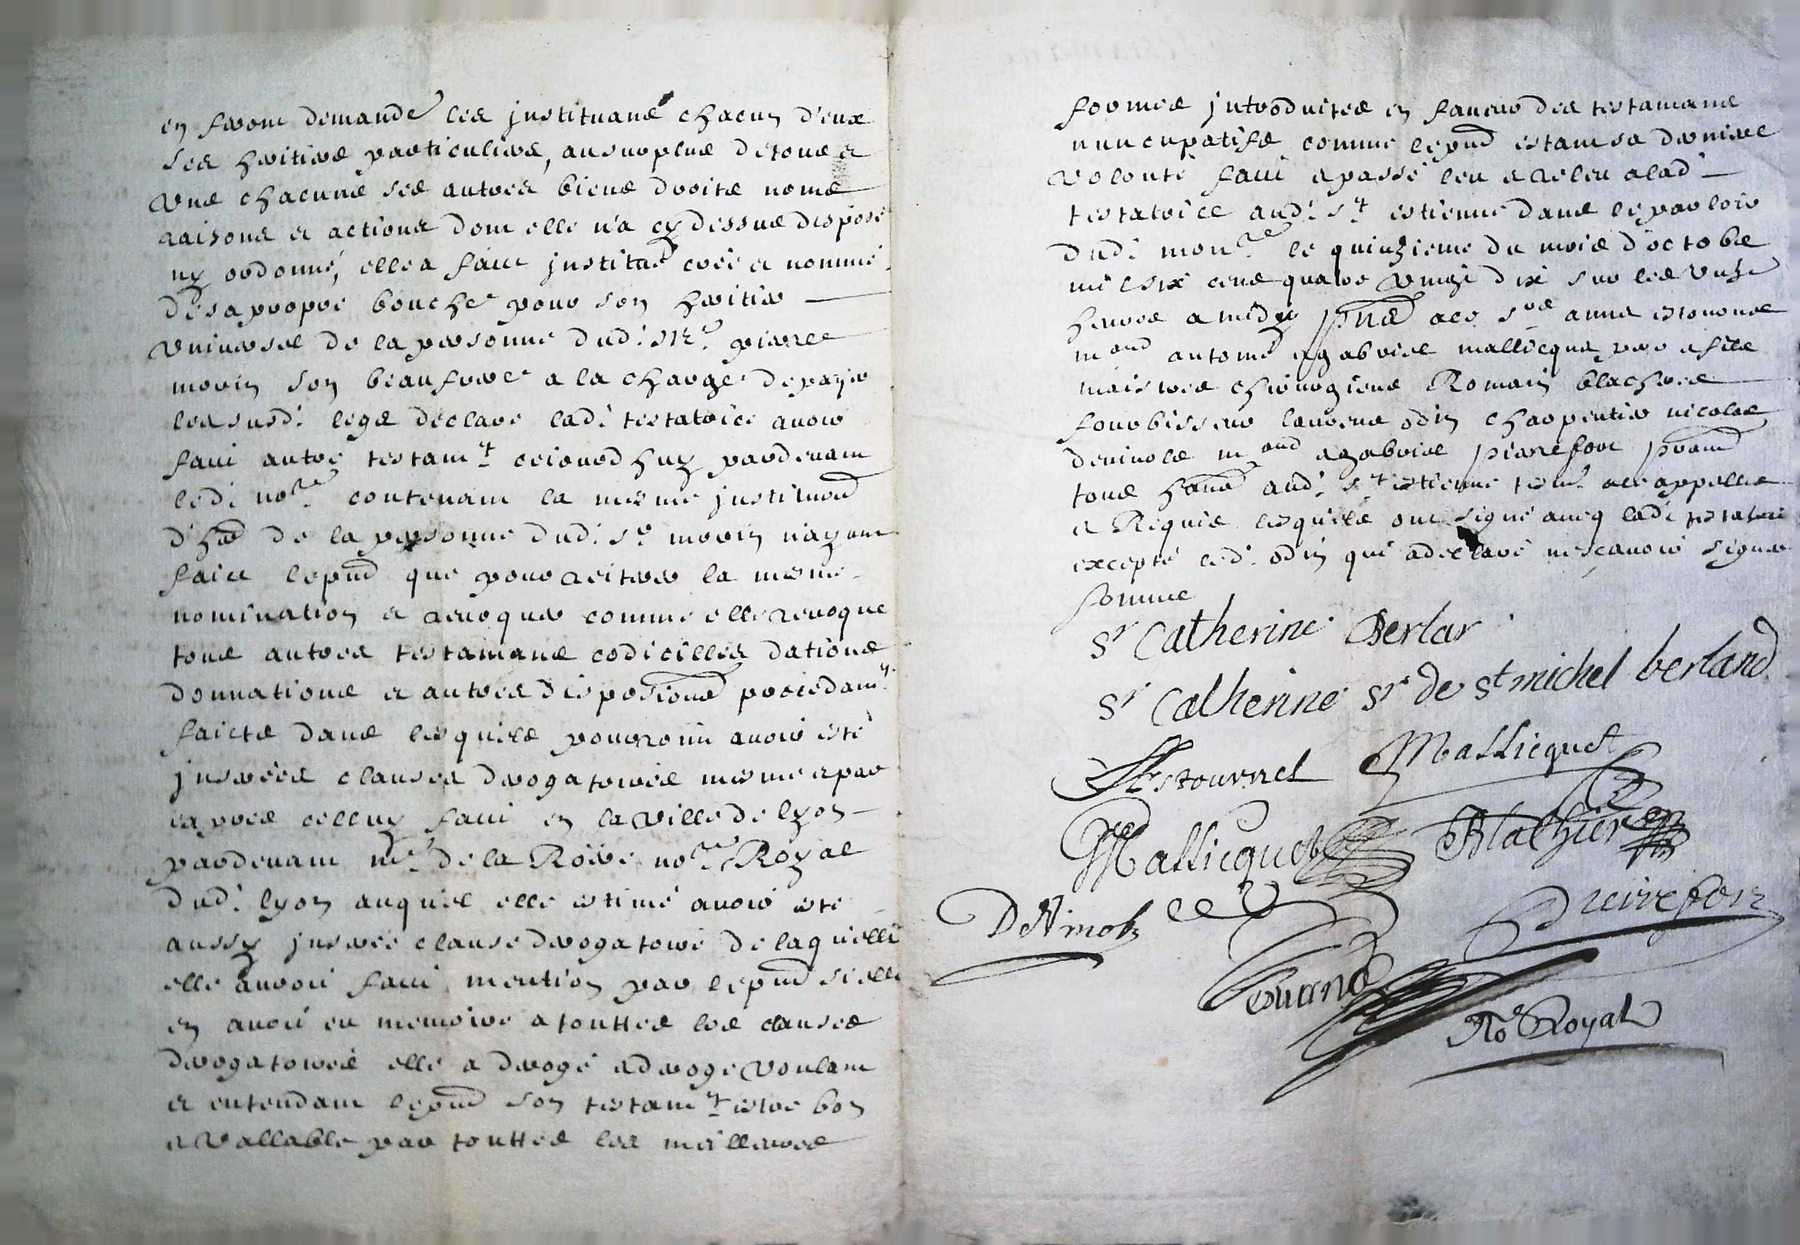 en feront demande les jnstituant chacun d'eux
ses heritiers particuliers, au surplus de tous et
uns chacuns ses autres biens droits noms
raisons et actions dont elle n'a cy dessus disposé
ny ordonné, elle a faict jnstitué creé et nommé
de sa propre bouche pour son heritier
universel de la personne dud: Sr. pierre
morin son beaufrere a la charge de payer
les susd: legs declare lad: testatrice avoir
faict autre testamt. cejourdhuy pardevant
led: nore contenant la mesme jnstitution
d'her de la personne dud: sr. morin n'ayant
faict le pnt que pour reiterer la mesme
nomination et revoquer comme elle revoque
tous autres testamans codicilles dations
donnations et autres dispositions precedamt.
faicts dans lesquels pourroint avoir esté
jnserées clauses derogatoires mesme et par
expres celluy faict en la ville de lyon
pardevant me. de la Roere nore Royal
dud: lyon auquel elle estime avoir esté
aussy jnseré clause derogatoire de laquelle
elle auroit faict mention par le pnt si elle
en avoit eu memoire a touttes les clauses
derogatoires elle a derogé et deroge voulant
et entendant le pnt son testamt. estre bon
et vallable par touttes les meilleures
formes jntroduites en faveur des testamans
nuncupatifs comme le pnt estant sa derniere
volonté faict et passé leu et releu a lad:
testatrice aud: st. estienne dans le parloir
dud: monre le quinzieme du mois d'octobre
mil six cens quatre vingt dix sur les unze
heures a midy pnts acc srs anne estournel
mand antoine et gabriel mallicquet pere et fils
maistres chirurgiens Romain blachier
fourbisseur laurens odin charpentier nicolas
deninolz mand et gabriel pierrefort prant
tous hants aud: st estienne tesm: acc appellés
et Requis lesquels ont signé avec lad: testatrice
excepté led: odin qui a declaré ne sçavoir signer
sommé
Sr Catherine Berlar
Sr Catherine Sr de St michel berland
Estournel Mallicquet
Mallicquet Blachier
DeNinolz Pierrefort
No. Royal